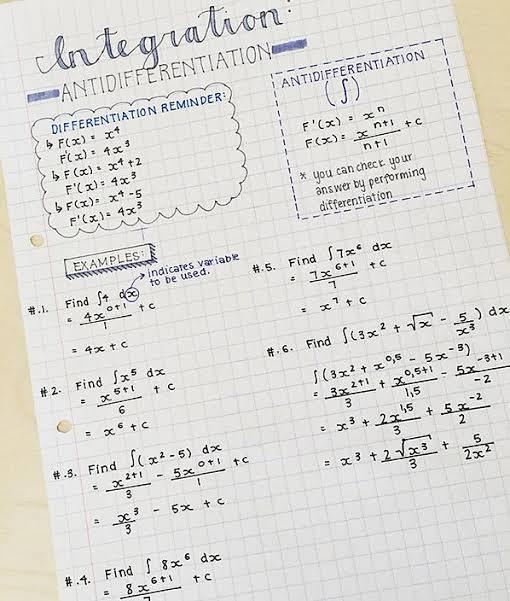 Integration:
ANTIDIFFERENTIATION
DIFFERENTIATION REMINDER:
↳ F(x) = x⁴
F(x) = 4x³
↳ F(x) = x⁴ + 2
F'(x) = 4x³
↳ F(x) = x⁴ - 5
F'(x) = 4x³
ANTIDIFFERENTIATION
(∫)
F'(x) = xⁿ
F(x) = xⁿ⁺¹/n+1 + c
* you can check your
answer by performing
differentiation
EXAMPLES:
→ indicates variable
to be used.
#.1. Find ∫4 dx
= 4x⁰⁺¹/1 + c
= 4x + c
#2. Find ∫x⁵ dx
= x⁵⁺¹/6 + c
= x⁶ + c
#.3. Find ∫(x² - 5) dx
= x²⁺¹/3 - 5x⁰⁺¹/1 + c
= x³/3 - 5x + c
#.4. Find ∫ 8x⁶ dx
= 8x⁶⁺¹/7 + c
#.5. Find ∫7x⁶ dx
= 7x⁶⁺¹/7 + c
= x⁷ + c
#.6. Find ∫(3x² + √x - 5/x³) dx
∫(3x² + x^0,5 - 5x⁻³)
= 3x²⁺¹/3 + x^0,5+1/1,5 - 5x⁻³⁺¹/-2
= x³ + 2x^1,5/3 + 5x⁻²/2
= x³ + 2√x³/3 + 5/2x²